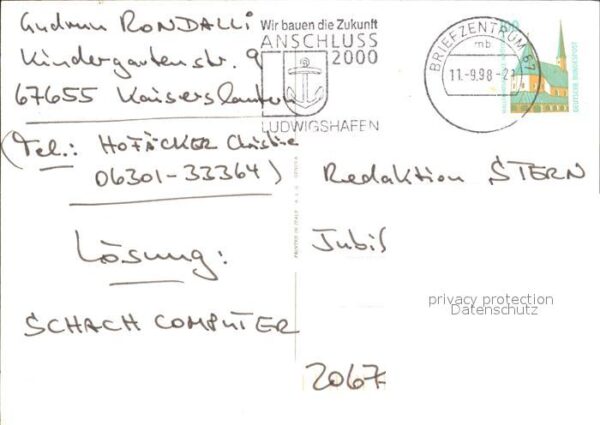 Gudrun RONDALLI
Kindergartenstr. 9
67655 Kaiserslautern
(Tel.: HOFÄCKER Christine
06301-33364)
Lösung:
SCHACH COMPUTER
Wir bauen die Zukunft
ANSCHLUSS
2000
LUDWIGSHAFEN
BRIEFZENTRUM 67
mb
11.-9.98-21
DEUTSCHE BUNDESPOST
PRINTED IN ITALY
Redaktion STERN
Jubil
2067
privacy protection
Datenschutz